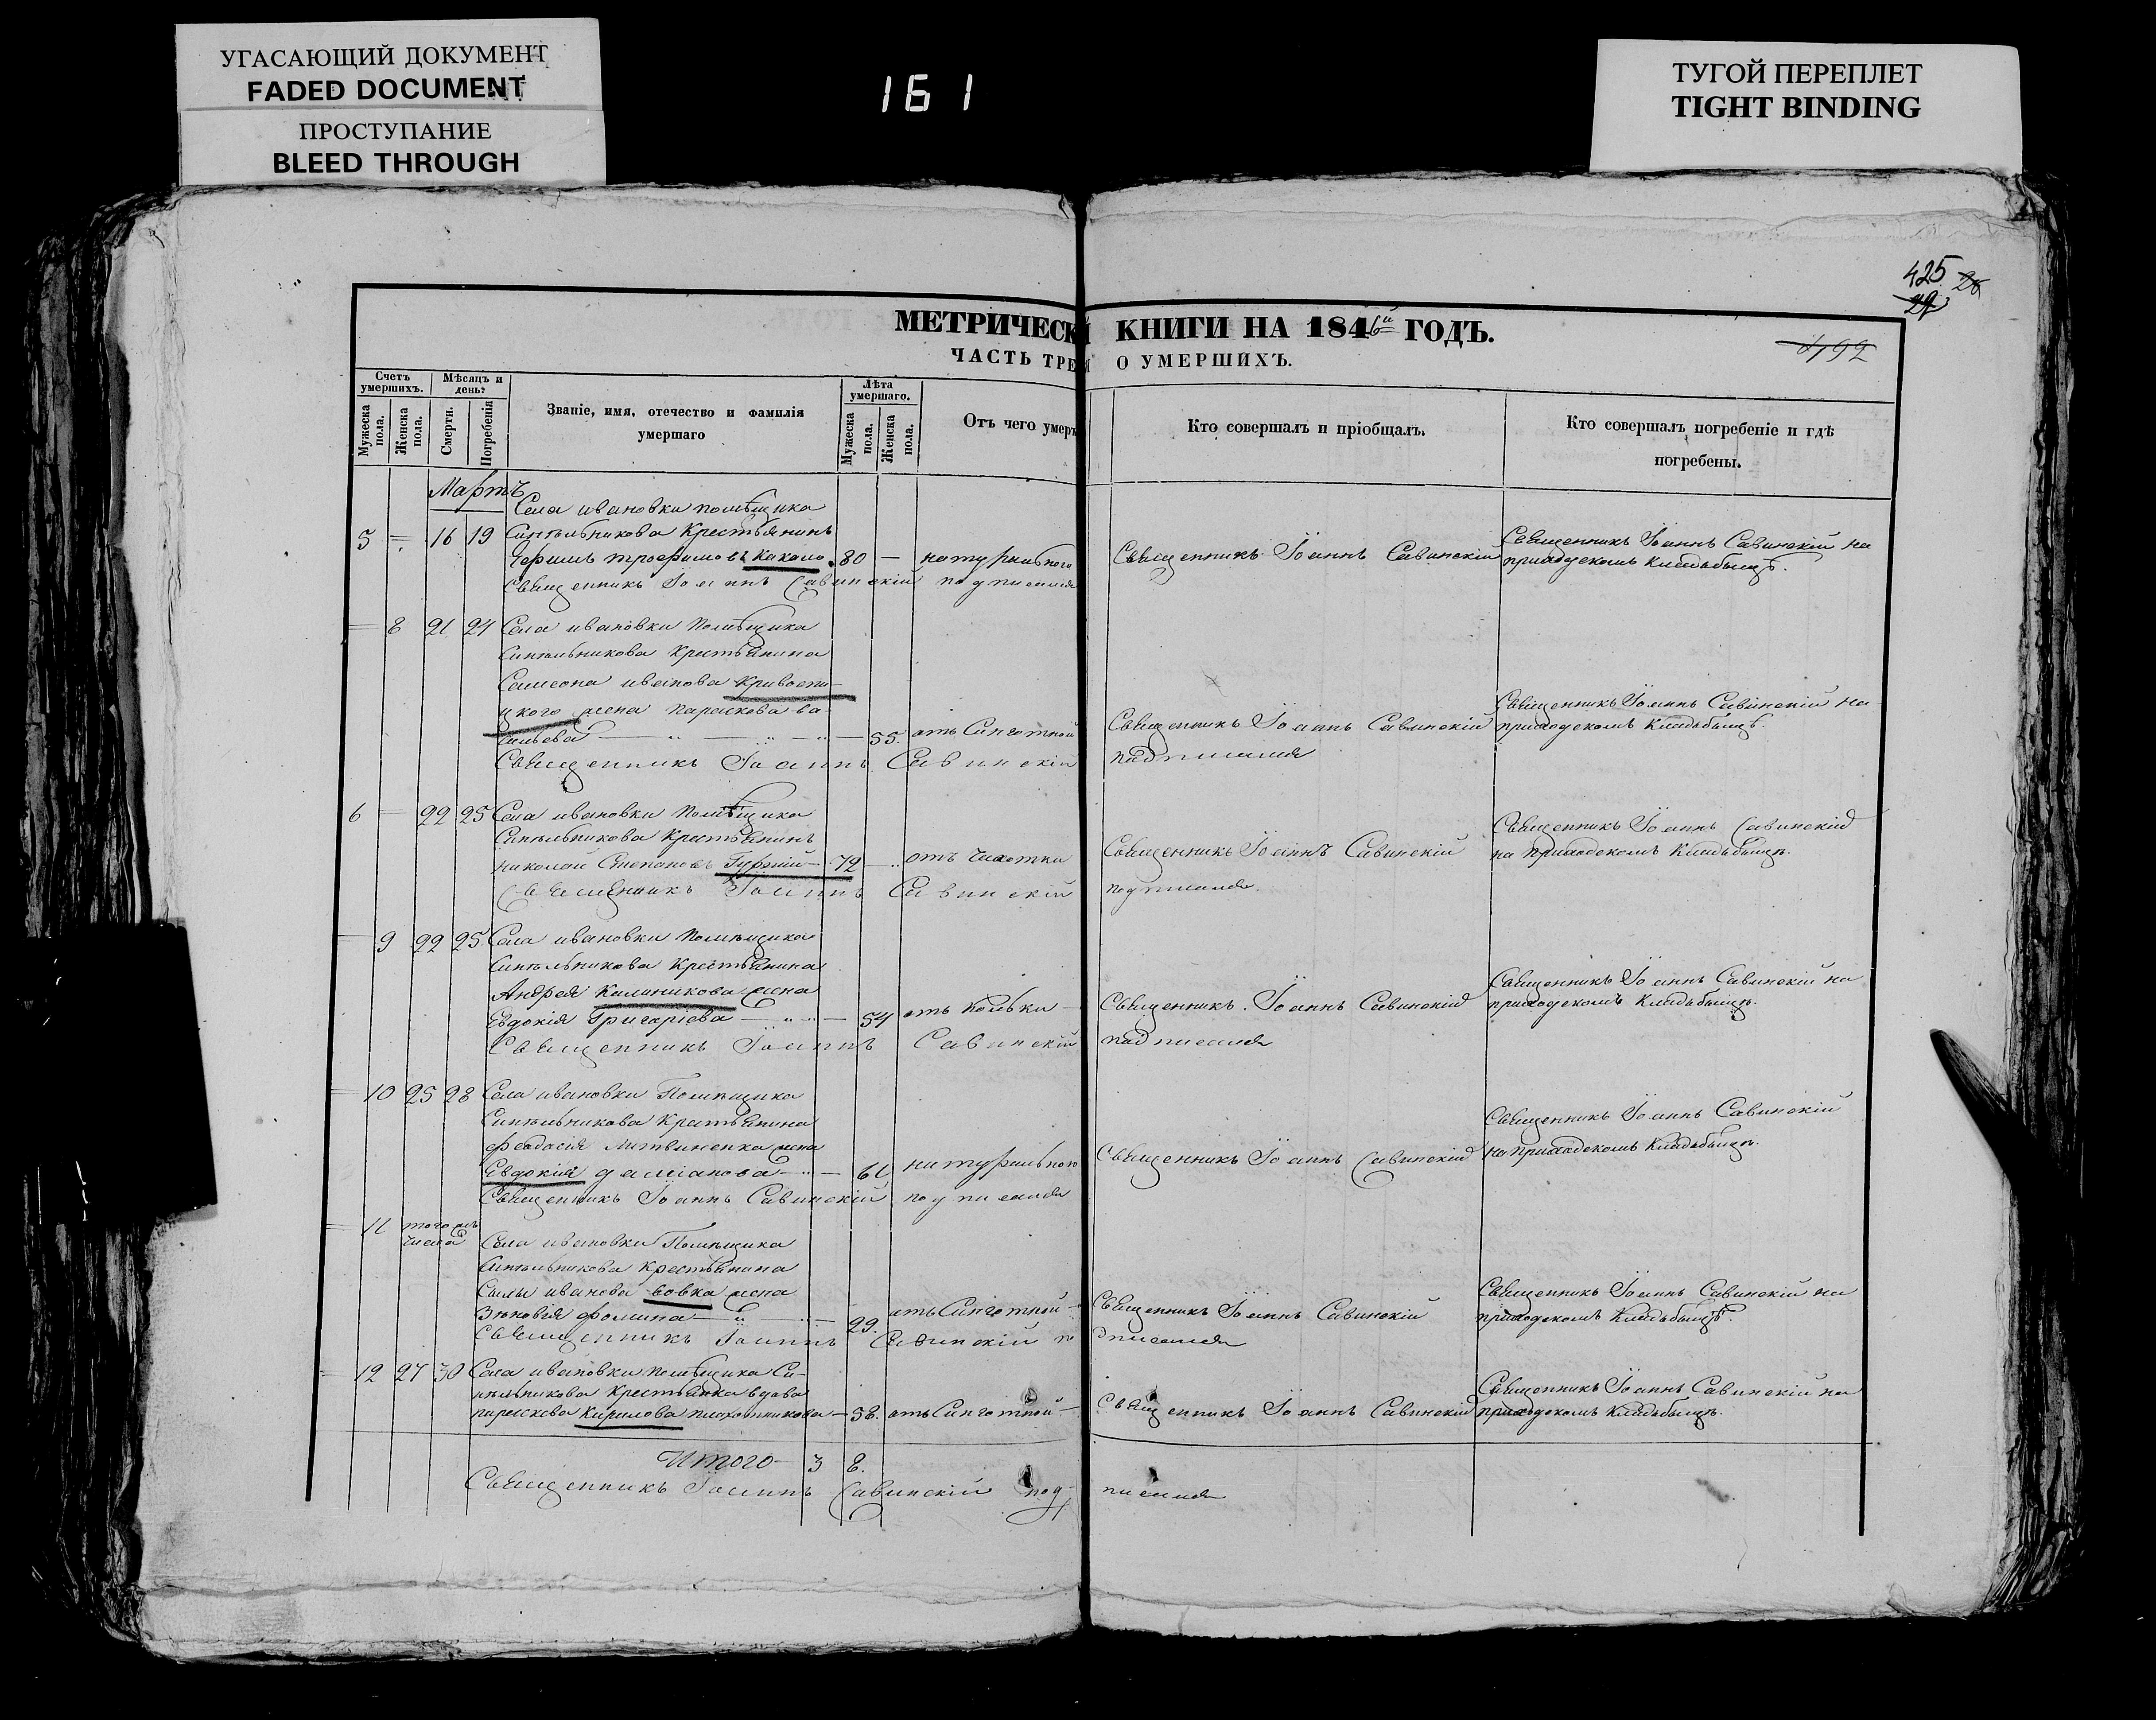 УГАСАЮЩИЙ ДОКУМЕНТ
FADED DOCUMENT
ПРОСТУПАНИЕ
BLEED THROUGH
161
ТУГОЙ ПЕРЕПЛЕТ
TIGHT BINDING
425
492
МЕТРИЧЕСК КНИГИ НА 1846й ГОДЪ.
ЧАСТЬ ТРЕ О УМЕРШИХЪ.
Счетъ умершихъ.
Мѣсяцъ и день.
Званіе, имя, отечество и фамилія умершаго
Лѣта умершаго.
Отъ чего умеръ
Кто совершалъ и пріобщалъ.
Кто совершалъ погребеніе и гдѣ погребены.
Мужеска пола.
Женска пола.
Смерти.
Погребенія
Мужеска пола.
Женска пола.
Мартъ
Села ивановки помѣщика
5 = 16 19 Синельникова Крестьянинъ
Ефимъ трофимовъ 80 — натуральною
Священникъ Іоаннъ Савинскій
Священникъ Іоаннъ Савинскій на
приходскомъ Кладьбищѣ.
Священникъ Іоаннъ Савинскій подписался
— 8 21 24 Села ивановки Помѣщика
Синельникова Крестьянина
Самсона иванова
жена Параскова ва-
сильева — 55. отъ
Священникъ Іоаннъ Савинскій
Священникъ Іоаннъ Савинскій на
приходскомъ Кладьбищѣ.
Священникъ Іоаннъ Савинскій подписался
6 — 22 25 Села ивановки Помѣщика
Синельникова Крестьянинъ
николай Степановъ 72 — отъ Чахотки
Священникъ Іоаннъ Савинскій
Священникъ Іоаннъ Савинскій
на приходскомъ Кладьбищѣ.
Священникъ Іоаннъ Савинскій подписался.
— 9 22 25 Села ивановки Помѣщика
Синельникова Крестьянина
Андрея Калиникова жена
Евдокія Григоріева — 54 отъ
Священникъ Іоаннъ Савинскій
Священникъ Іоаннъ Савинскій на
приходскомъ Кладьбищѣ.
Священникъ Іоаннъ Савинскій подписался
— 10 25 28 Села ивановки Помѣщика
Синельникова Крестьянина
Литвиненка жена
Евдокія даміанова — 61, натуральною
Священникъ Іоаннъ Савинскій
Священникъ Іоаннъ Савинскій
на приходскомъ Кладьбищѣ.
Священникъ Іоаннъ Савинскій подписался
= 11 того жъ
числа
Села ивановки Помѣщика
Синельникова Крестьянина
иванова вовка жена
Зѣновія фомина — 29.
Священникъ Іоаннъ Савинскій
Священникъ Іоаннъ Савинскій на
приходскомъ Кладьбищѣ.
Священникъ Іоаннъ Савинскій подписался
= 12 27 30 Села ивановки помѣщика Си-
нельникова Крестьянка вдова
параскева Кирилова — 58. отъ
Священникъ Іоаннъ Савинскій
Священникъ Іоаннъ Савинскій на
приходскомъ Кладьбищѣ.
Итого — 3 8.
Священникъ Іоаннъ Савинскій подписался